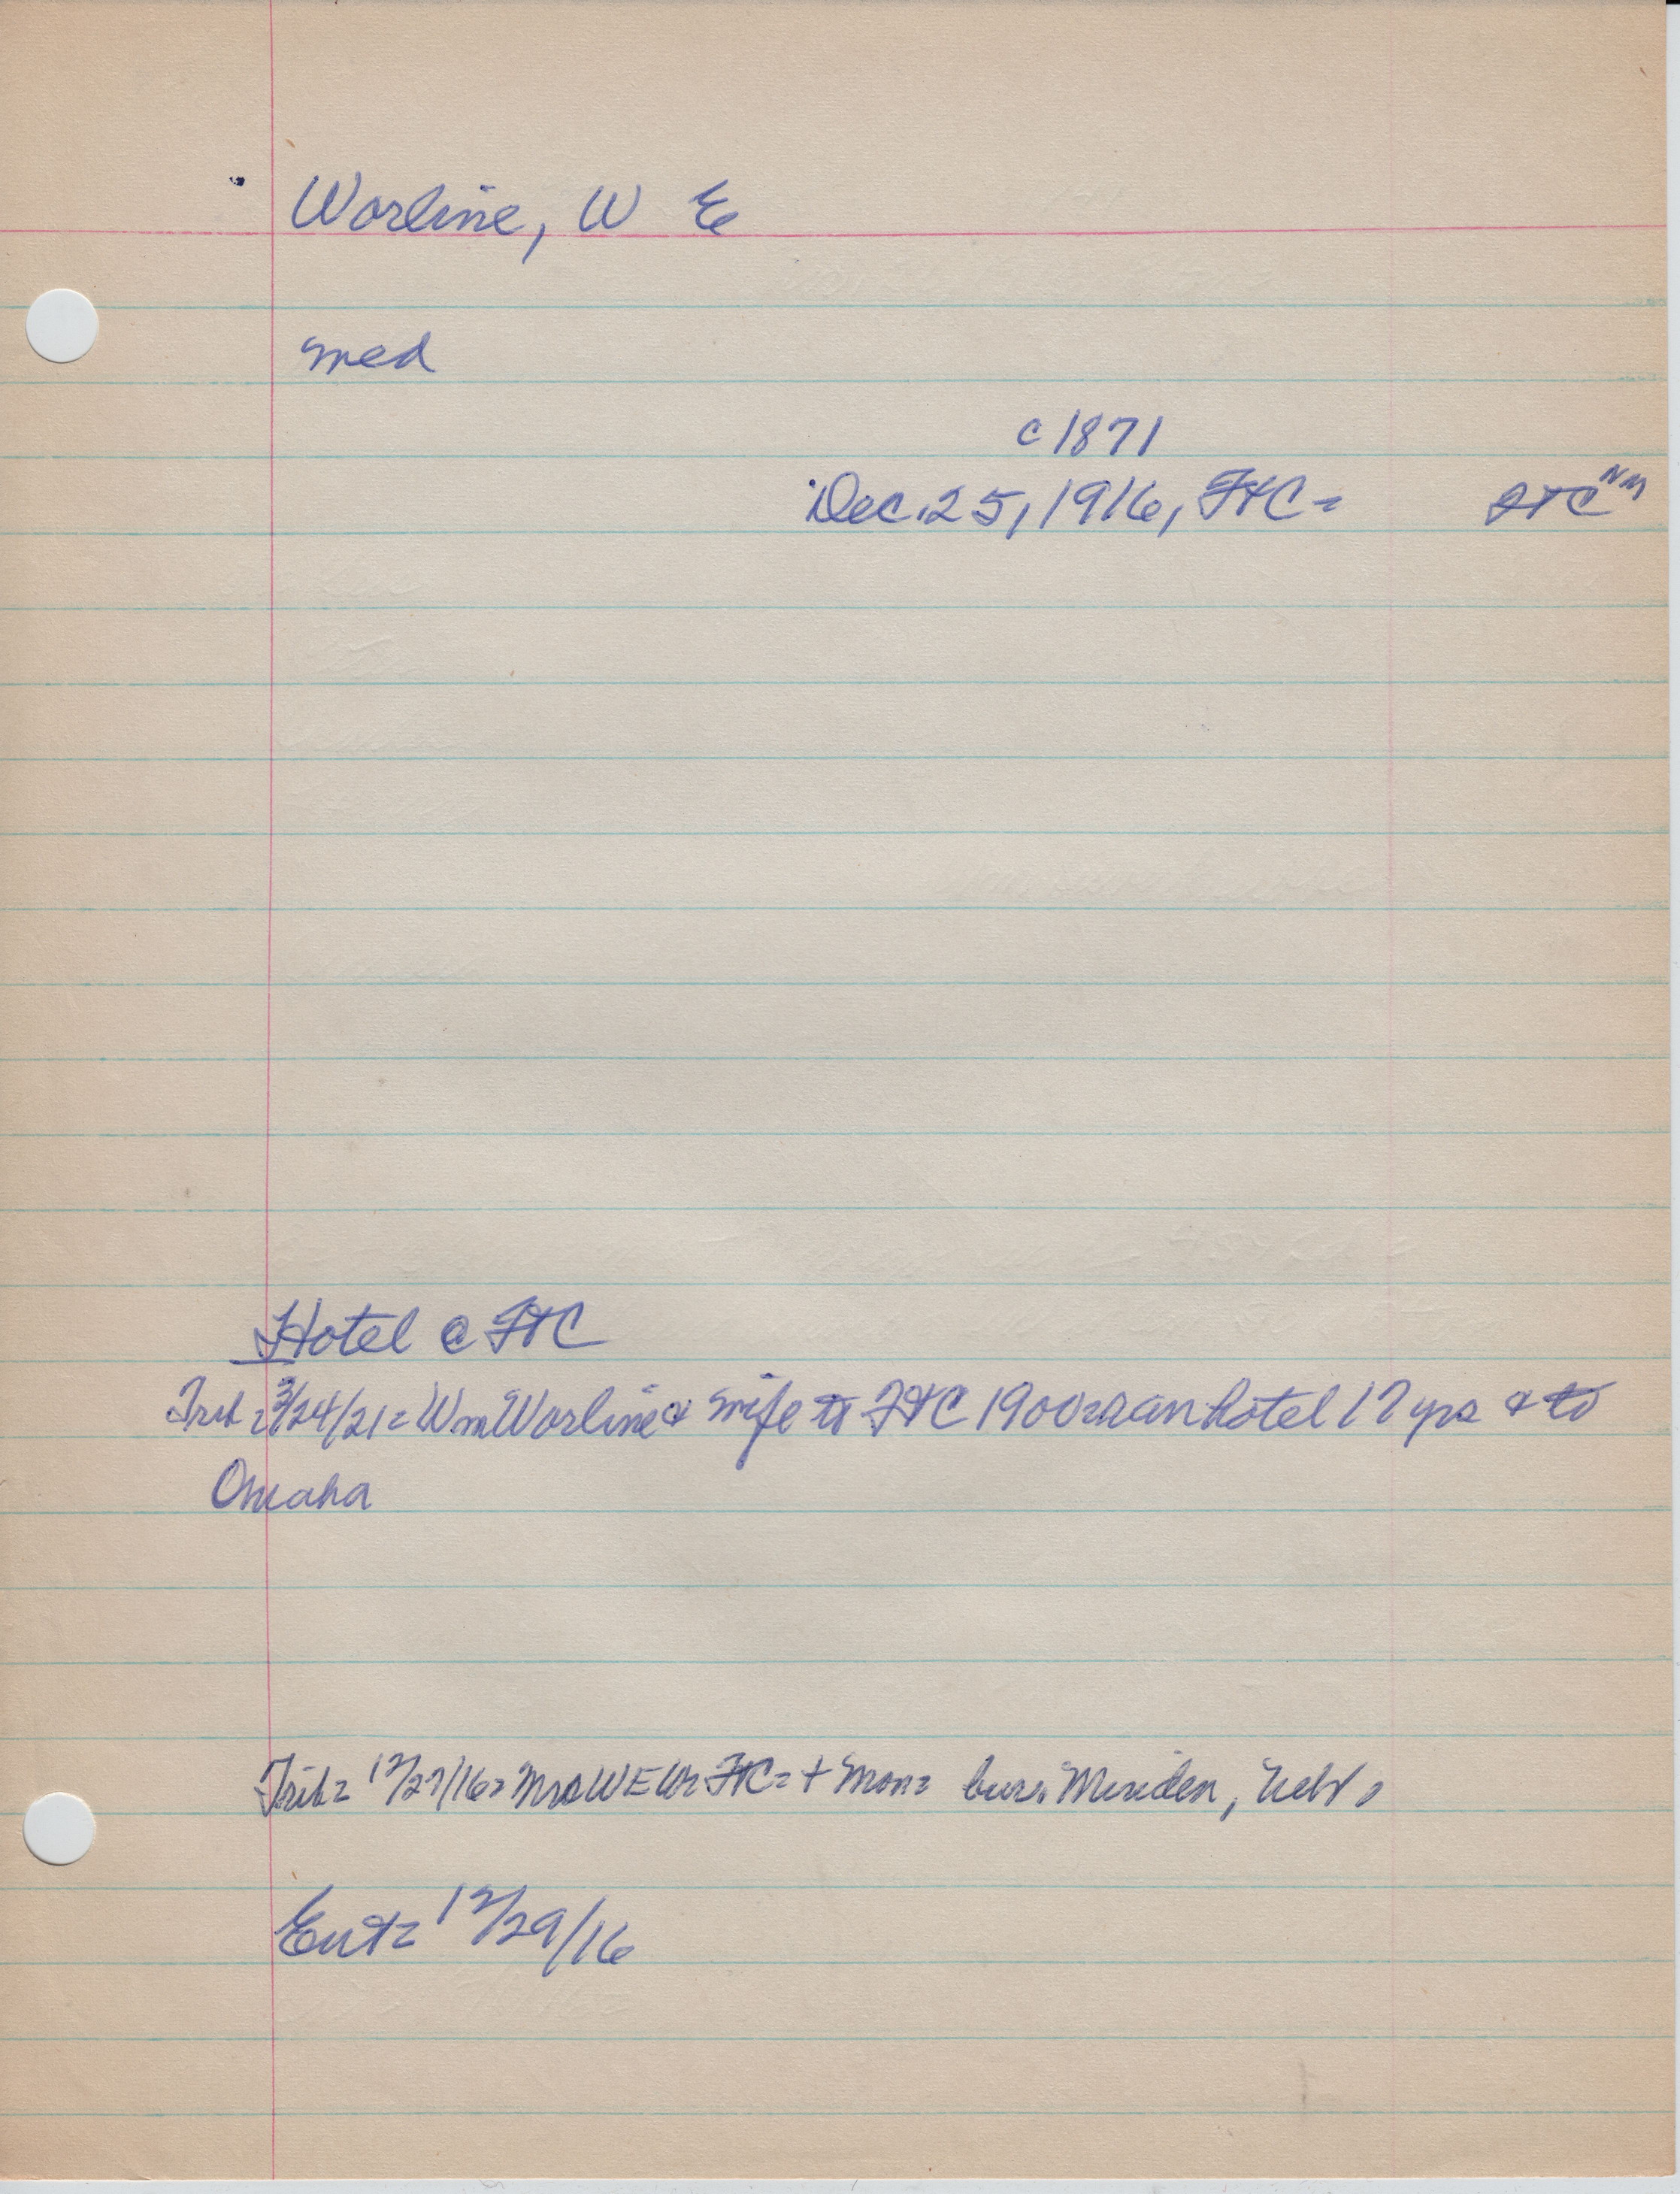 Worline, W E
med
c 1871
Dec. 25, 1916, FtC = FtC NM
Hotel @ FtC
Trib = 3/24/21 = Wm Worline & wife to FtC 1900 = ran hotel 17 yrs & to
Omaha
Trib = 12/27/16 = Mrs WE Wr FtC = + Mon = bur. Meriden, Neb =
Ent = 12/29/16